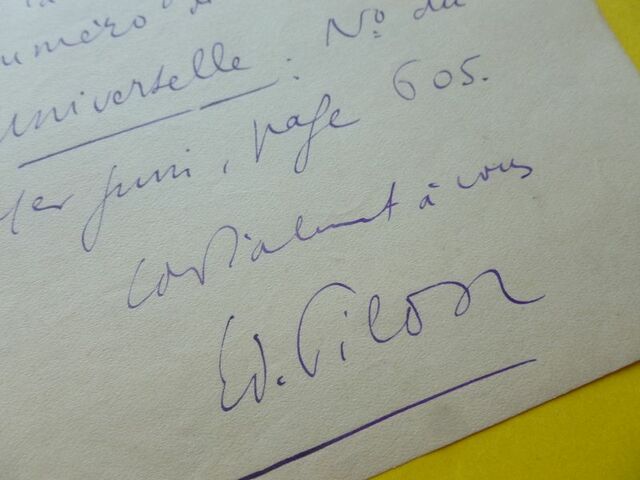 la
numéro
Universelle : No du
1er juin, page 605.
Cordialement à vous
Ed. Pilon